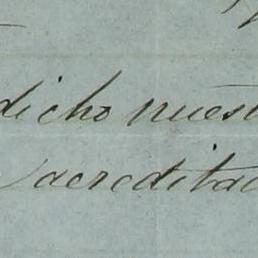 dicho nuest
acredita